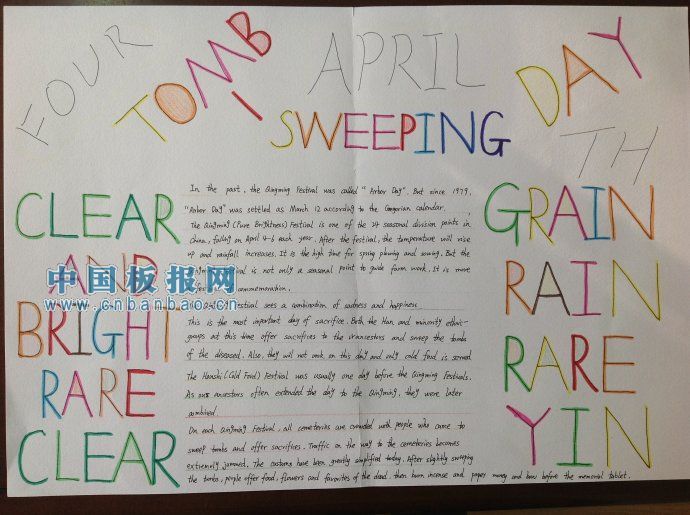 FOUR TOMB APRIL DAY
SWEEPING TH
CLEAR
AND
BRIGHT
RARE
CLEAR
In the past, the Qingming Festival was called "Arbor Day". But since 1979,
"Arbor Day" was settled as March 12 according to the Gregorian calendar.
The Qingming (Pure Brightness) Festival is one of the 24 seasonal division points in
China, falling on April 4-6 each year. After the festival, the temperature will rise
up and rainfall increases. It is the high time for spring plowing and sowing. But the
Festival is not only a seasonal point to guide farm work. It is more
commemoration.
Festival sees a combination of sadness and happiness.
This is the most important day of sacrifice. Both the Han and minority ethnic
groups at this time offer sacrifices to their ancestors and sweep the tombs
of the diseased. Also, they will not cook on this day and only cold food is served.
The Hanshi (Cold Food) Festival was usually one day before the Qingming Festivals.
As our ancestors often extended the day to the Qingming, they were later
combined.
On each Qingming Festival, all cemeteries are crowded with people who came to
sweep tombs and offer sacrifices. Traffic on the way to the cemeteries becomes
extremely jammed. The customs have been greatly simplified today. After slightly sweeping
the tombs, people offer food, flowers and favorites of the dead, then burn incense and paper money and bow before the memorial tablet.
GRAIN
RAIN
RARE
YIN
中国板报网
www.cnbanbao.cn